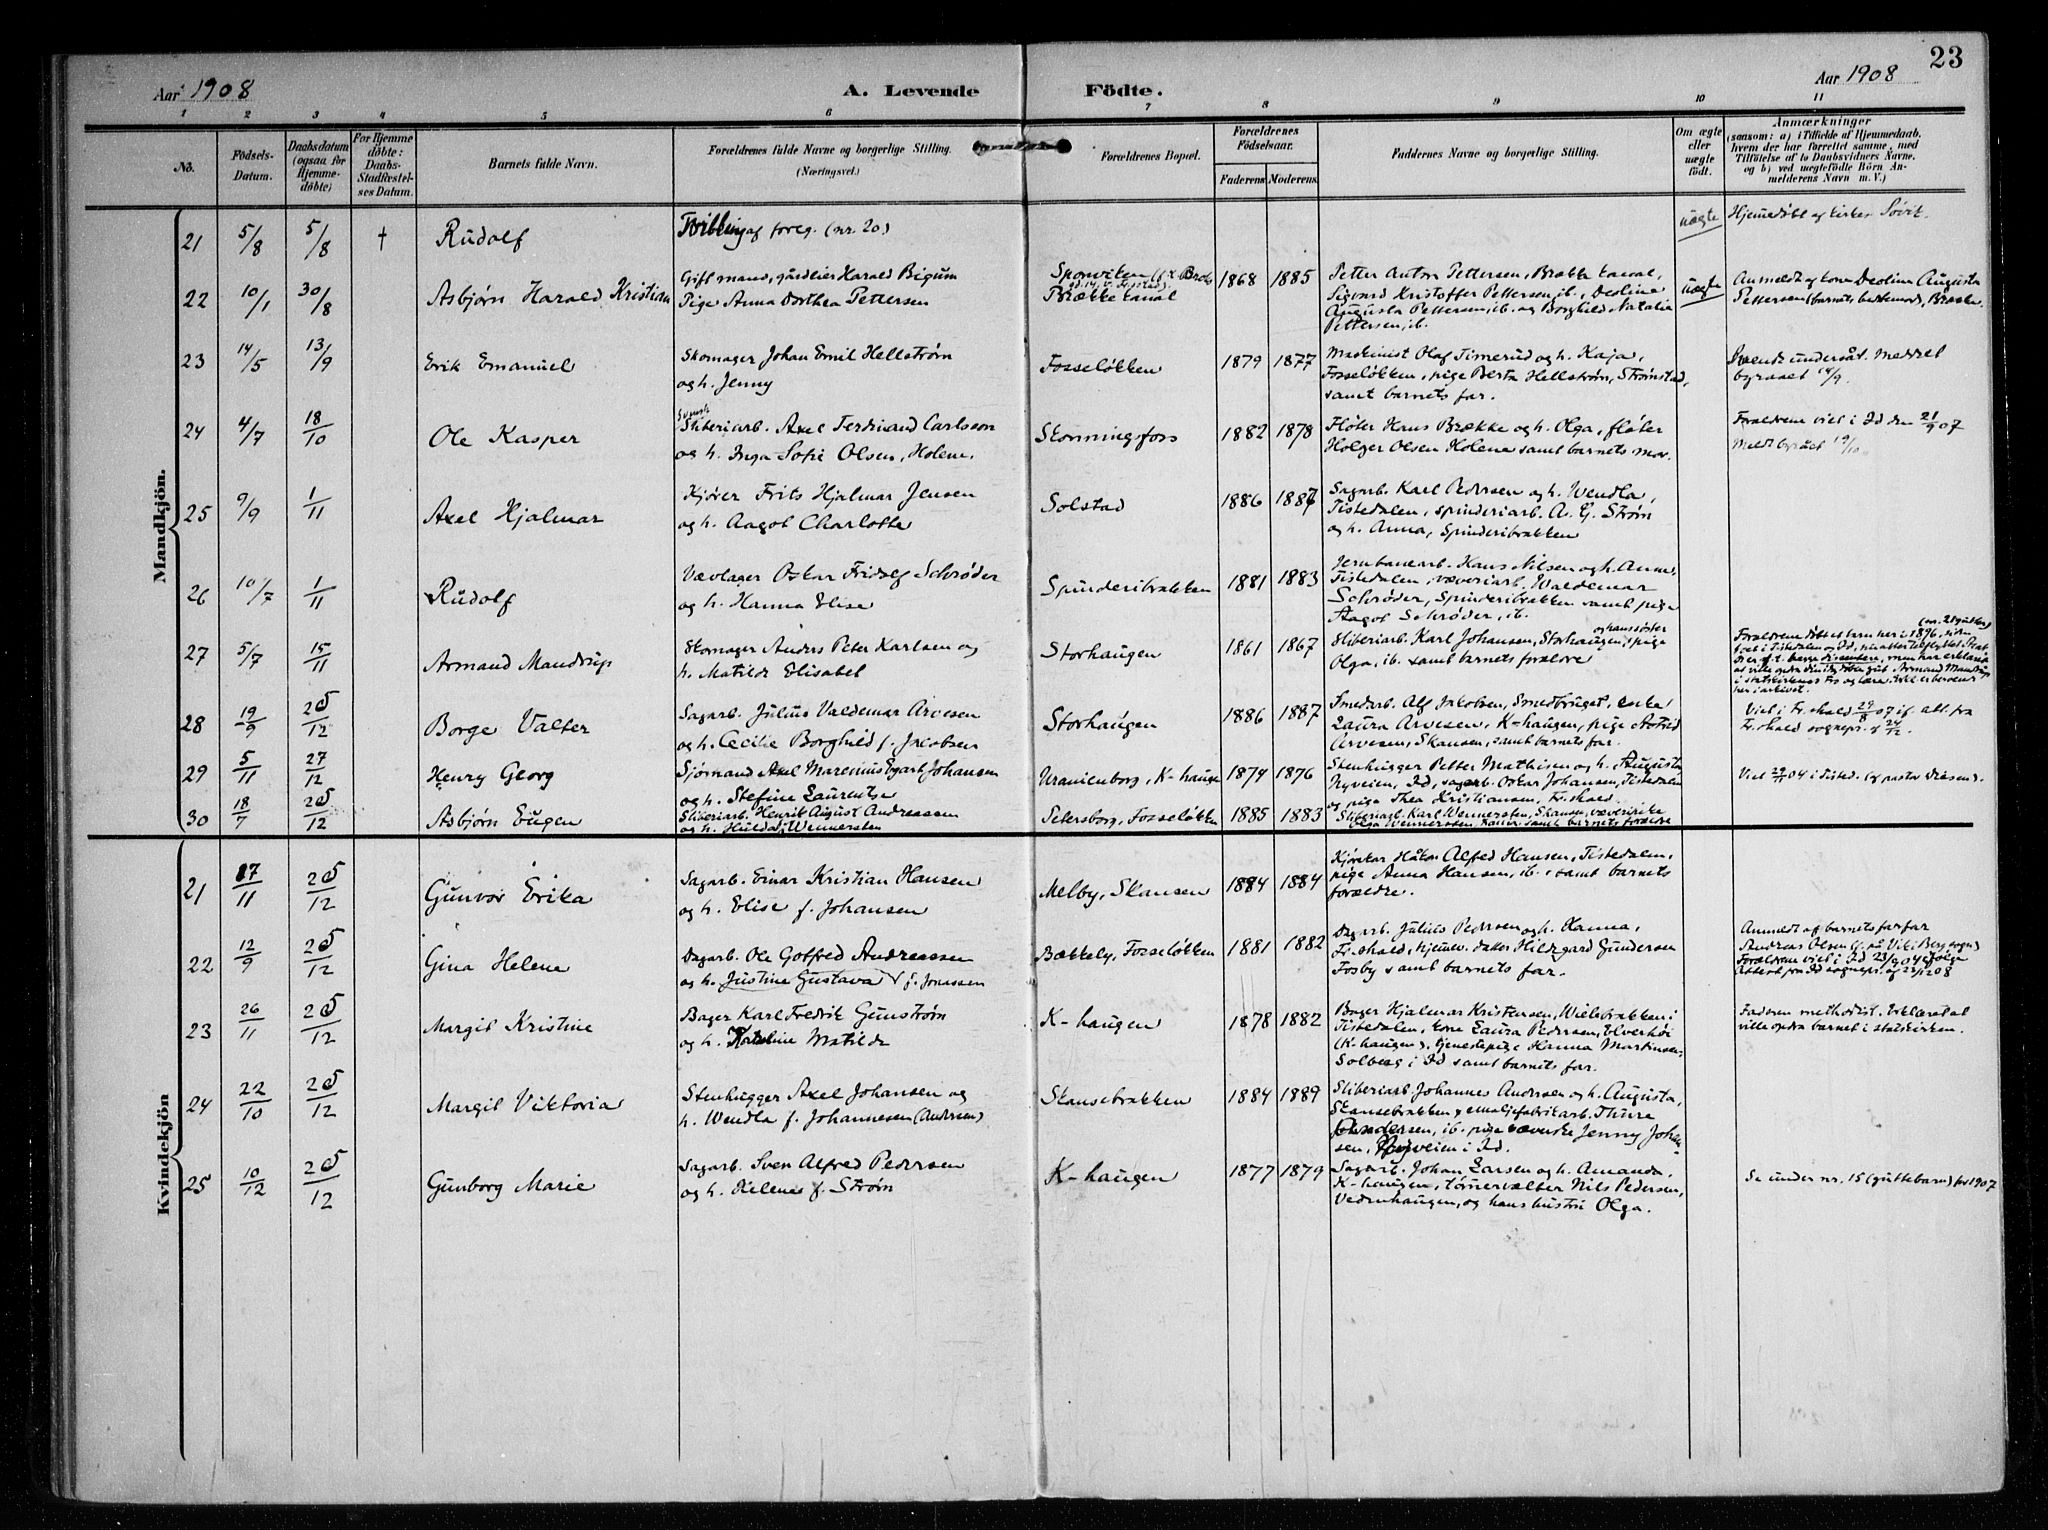 23
Aar 1908
A. Levende
Födte.
Aar 1908
1 2 3 4 5 6 7 8 9 10 11
No.
Födsels-Datum.
Daabsdatum (ogsaa for Hjemme-döbte)
For Hjemme döbte: Daabs-Stadfæstelses Datum.
Barnets fulde Navn.
Forældrenes fulde Navne og borgerlige Stilling.
(Næringsvei.)
Forældrenes Bopæl.
Forældrenes Födselsaar.
Faderens.
Moderens.
Faddernes Navne og borgerlige Stilling.
Om ægte eller uægte födt.
Anmærkninger
(saasom: a) i Tilfælde af Hjemmedaab.
hvem der har forrettet samme, med
Tilföielse af to Daabsvidners Navne.
og b) ved uegtefödte Börn An-
melderens Navn m. V.)
Mandkjön.
21 5/8 5/8 † Rudolf Tvilling af foreg. (nr. 20) uægte Hjemedøbt af kirkes.
22 10/1 30/8 Asbjørn Harald Kristian
Gift mand, gårdeier Harald Bigum
Pige Anna Dorthea Pettersen
Sponviken
Brække kanal
1868 1885
Petter Anton Pettersen, Brække kanal,
Sigvard Kristoffer Pettersen, ib., Deolina
Augusta Pettersen, ib. og Borghild Natalia
Pettersen, ib.
uægte
Anmeldt af kone Deolina Augusta
Pettersen (barnets bestemod), Brække
23 14/5 13/9 Erik Emanuel
Skomager Johan Emil Hellstrøm
og h. Jenny
Fosseløkken
1879 1877
Maskinist Olaf Timerud og h. Kaja,
Fosseløkken, pige Berta Hellstrøm, Strømstad,
samt barnets far.
Svensk undersåt. Meddelt
byrået 14/9.
24 4/7 18/10 Ole Kasper
Svensk
Sliberiarb. Axel Ferdinand Carlsson
og h. Inga Sofie Olsen, Holene.
Skonningsfoss
1882 1878
Fløter Hans Brække og h. Olga, fløter
Holger Olsen Holene samt barnets mor.
Forældrene viet i Id den 21/9 07
Meldt byrået 19/10
25 9/9 1/11 Axel Hjalmar
Kjører Frits Hjalmar Jensen
og h. Aagot Charlotte
Solstad
1886 1887
Sagarb. Karl Pedersen og h. Wendla,
Tistedalen, spinderiarb. A. G. Strøm
og h. Anna, Spinderibrakken
26 10/7 1/11 Rudolf
Vævlager Oskar Fridolf Schrøder
og h. Hanna Elise
Spinderibrakken
1881 1883
Jernbanearb. Hans Nilsen og h. Anna,
Tistedalen, væveriarb. Waldemar
Schrøder, Spinderibrakken samt pige
Aagot Schrøder, ib.
27 5/7 15/11 Armand Mandrup
Skomager Anders Peter Karlsen og
h. Matilde Elisabet
Storhaugen
1861 1867
Sliberiarb. Karl Johansen, Storhaugen, og hans søster pige
Olga, ib. samt barnets forældre
28 19/9 26/12 Borge Valter
Sagarb. Julius Valdemar Arvesen
og h. Cecilie Borghild f. Jacobsen
Storhaugen
1886 1887
Smedarb. Alf Jakobsen, Smedbruget, enke
Laura Arvesen, K-haugen, pige Astrid
Arvesen, Skansen, samt barnets far.
Viet i Fr.hald 29/8 07 if. att. fra
Fr.hald sognepr. af 24/12.
29 5/11 27/12 Henry Georg
Sjømand Axel Marenius Egart Johansen
og h. Stefine Laurentse
Uranienborg, K-haugen
1874 1876
Stenhugger Petter Mathisen og h. Augusta
Nyveien, Id, sagarb. Oskar Johansen, Tistedalen
og pige Thea Kristiansen, Fr.hald.
30 18/7 26/12 Asbjørn Eugen
Sliberiarb. Henrik August Andreassen
og h. Hulda f. Wennersten
Petersborg, Fosseløkken
1885 1883
Sliberiarb. Karl Wennersten, Skansen, væveripike
Olga Wennersten, samt barnets forældre
Kvindekjön
21 17/11 26/12 Gunvor Erika
Sagarb. Einar Kristian Hansen
og h. Elise f. Johansen
Melby, Skansen
1884 1884
Kjørekar Håkon Alfred Hansen, Tistedalen,
pige Anna Hansen, ib. samt barnets
forældre.
22 12/9 26/12 Gina Helene
Dagarb. Ole Gotfred Andreassen
og h. Justine Gustava f. Jonassen
Bækkely, Fosseløkken
1881 1882
Dagarb. Julius Pedersen og h. Hanna,
Fr.hald, hjemv. datter Hildegard Gundersen
Fosby samt barnets far.
Anmeldt af barnets farfar
Andreas Olsen
Forældrene viet i Id 23/9 04 ifølge
attest fra Id sognepr. af 22/12 08
23 26/11 26/12 Margit Kristine
Bager Karl Fredrik Gunstrøm
og h. Kateline Matilde
K-haugen
1878 1882
Bager Hjalmar Kristensen, Wielsbrakken i
Tistedalen, kone Laura Pedersen, Elverhøi
(K-haugen), tjenestepige Hanna Martinsen,
Solberg i Id samt barnets far.
Faderen methodist. Erklæret at
ville opdra barnet i statskirken.
24 22/10 26/12 Margit Viktoria
Stenhugger Axel Johansen og
h. Wendla f. Johannesen (Andersen)
Skansebrakken
1884 1889
Sliberiarb. Johannes Andersen og h. Augusta,
Skansebrakken, emaljefabrikarb. Thure
Andersen, ib. pige væverske Jenny Johan-
sen, Nyveien i Id.
25 10/12 26/12 Gunborg Marie
Sagarb. Sven Alfred Pedersen
og h. Helene f. Strøm
K-haugen
1877 1879
Sagarb. Johan Larsen og h. Amanda,
K-haugen, tømmervælter Nils Pedersen,
Vedenhaugen, og hans hustru Olga.
Se under nr. 15 (guttebarn) for 1907